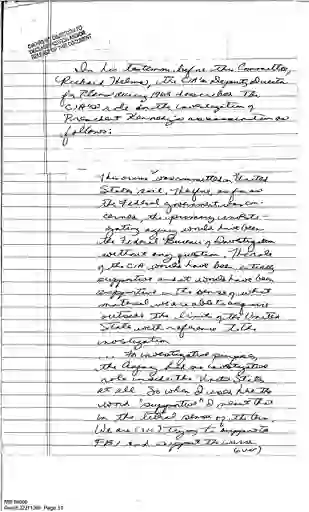 In his testimony before this Committee,
Richard Helms, the CIA's Deputy Director
for Plans during 1963 described the
CIA's role in the investigation of
President Kennedy's assassination as
follows:
This crime was committed on United
States soil. Therefore, as far as
the Federal government was con-
cerned, the primary investi-
gating agency would have been
the Federal Bureau of Investigation
without any question. The role
of the CIA would have been entirely
supportive and it would have been
supportive in the sense of what
material we are able to acquire
outside the limits of the United
States with reference to the
investigation
... For investigative purposes,
the Agency had no investigative
role inside the United States
at all. So when I used here the
word "supportive" I meant that
in the literal sense of the term.
We are (sic) trying to support the
FBI and support the